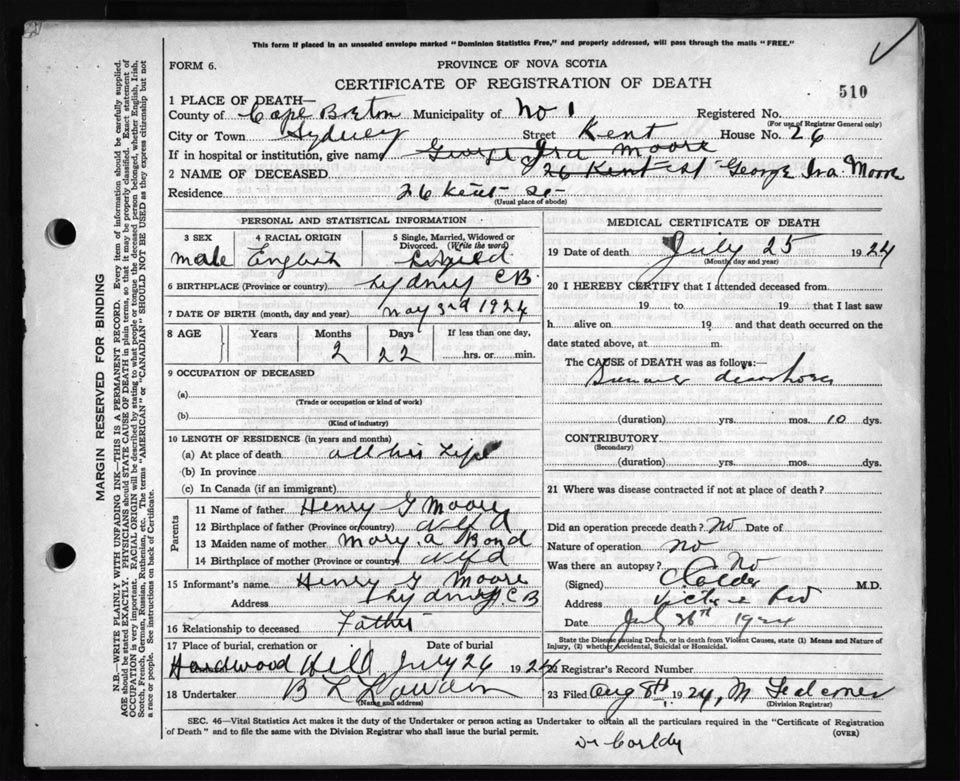 This form if placed in an unsealed envelope marked "Dominion Statistics Free," and properly addressed, will pass through the mails "FREE."
FORM 6.
PROVINCE OF NOVA SCOTIA
CERTIFICATE OF REGISTRATION OF DEATH
510
1 PLACE OF DEATH—
County of Cape Breton Municipality of No 1 Registered No.
(For use of Registrar General only)
City or Town Sydney Street Kent House No. 26
If in hospital or institution, give name George Ira Moore
2 NAME OF DECEASED 26 Kent St George Ira Moore
Residence 26 Kent St
(Usual place of abode)
PERSONAL AND STATISTICAL INFORMATION
3 SEX 4 RACIAL ORIGIN 5 Single, Married, Widowed or Divorced. (Write the word)
male English
6 BIRTHPLACE (Province or country) Sydney CB
7 DATE OF BIRTH (month, day and year) May 3rd 1924
8 AGE Years Months Days If less than one day,
2 22 hrs. or min.
9 OCCUPATION OF DECEASED
(a)
(Trade or occupation or kind of work)
(b)
(Kind of industry)
10 LENGTH OF RESIDENCE (in years and months)
(a) At place of death all his Life
(b) In province
(c) In Canada (if an immigrant)
Parents
11 Name of father Henry G Moore
12 Birthplace of father (Province or country) Nfd
13 Maiden name of mother Mary A Bond
14 Birthplace of mother (Province or country) Nfd
15 Informant's name Henry G Moore
Address Sydney C B
16 Relationship to deceased Father
17 Place of burial, cremation or
Hardwood Hill July 26 1924
18 Undertaker B L
(Name and address)
MEDICAL CERTIFICATE OF DEATH
19 Date of death July 25 1924
(Month, day and year)
20 I HEREBY CERTIFY that I attended deceased from
19 to 19 that I last saw
h alive on 19 and that death occurred on
date stated above, at m.
The CAUSE of DEATH was as follows:—
Summer
(duration) yrs. mos. 10 dys.
CONTRIBUTORY
(Secondary)
(duration) yrs. mos. dys.
21 Where was disease contracted if not at place of death?
Did an operation precede death? No Date of
Nature of operation no
Was there an autopsy? No
(Signed) M.D.
Address
Date July 26th 1924
State the Disease causing Death, or in death from Violent Causes, state (1) Means and Nature of Injury, (2) whether Accidental, Suicidal or Homicidal.
22 Registrar's Record Number
23 Filed Aug 8th 1924, M
(Division Registrar)
SEC. 46—Vital Statistics Act makes it the duty of the Undertaker or person acting as Undertaker to obtain all the particulars required in the "Certificate of Registration of Death" and to file the same with the Division Registrar who shall issue the burial permit.
(OVER)
MARGIN RESERVED FOR BINDING
N.B.—WRITE PLAINLY WITH UNFADING INK—THIS IS A PERMANENT RECORD. Every item of information should be carefully supplied.
AGE should be stated EXACTLY. PHYSICIANS should STATE CAUSE OF DEATH in plain terms, so that it may be properly classified. Exact statement of
OCCUPATION is very important. RACIAL ORIGIN will be described by stating to what people or tongue the deceased person belonged, whether English, Irish,
Scotch, French, German, Russian, Ruthenian, etc. The terms "AMERICAN" or "CANADIAN" SHOULD NOT BE USED as they express citizenship but not
a race or people. See instructions on back of Certificate.